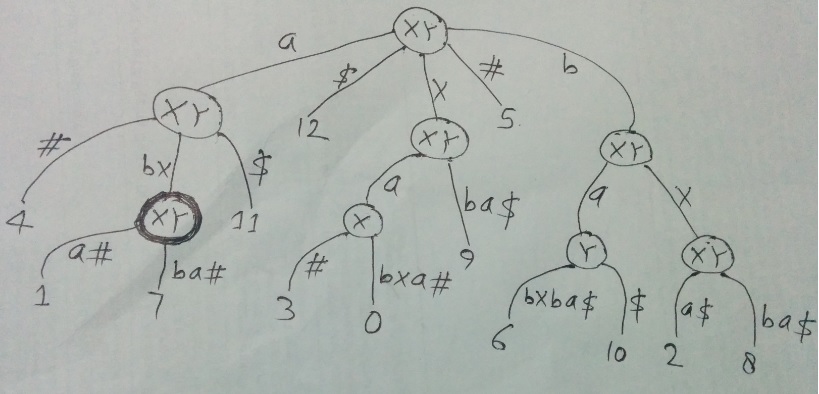 XY
a
$
X
#
b
XY
12
XY
5
XY
#
bx
$
a
ba$
a
X
4
XY
11
X
9
Y
XY
a#
ba#
#
bxa#
bxba$
$
a$
ba$
1
7
3
0
6
10
2
8